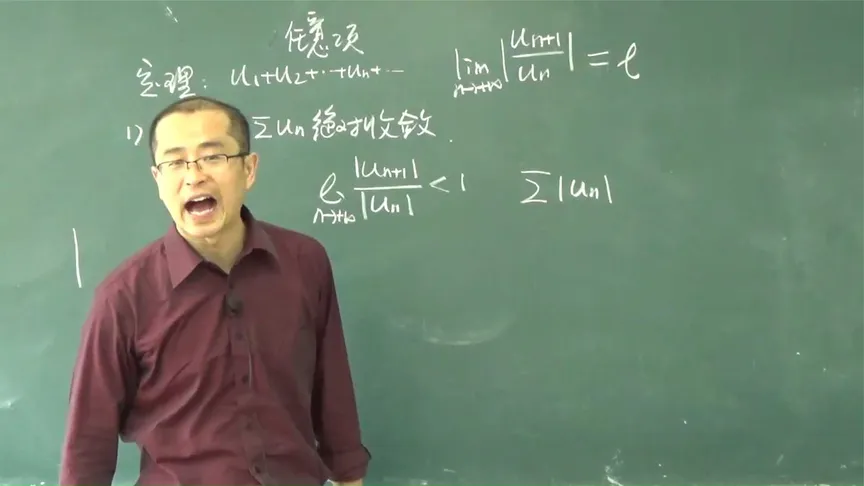 任意项
定理: u₁+u₂+⋯+uₙ+⋯ lim n→+∞ |uₙ₊₁/uₙ| = ℓ
1) Σuₙ 绝对收敛.
ℓ n→+∞ |uₙ₊₁|/|uₙ| < 1 Σ|uₙ|